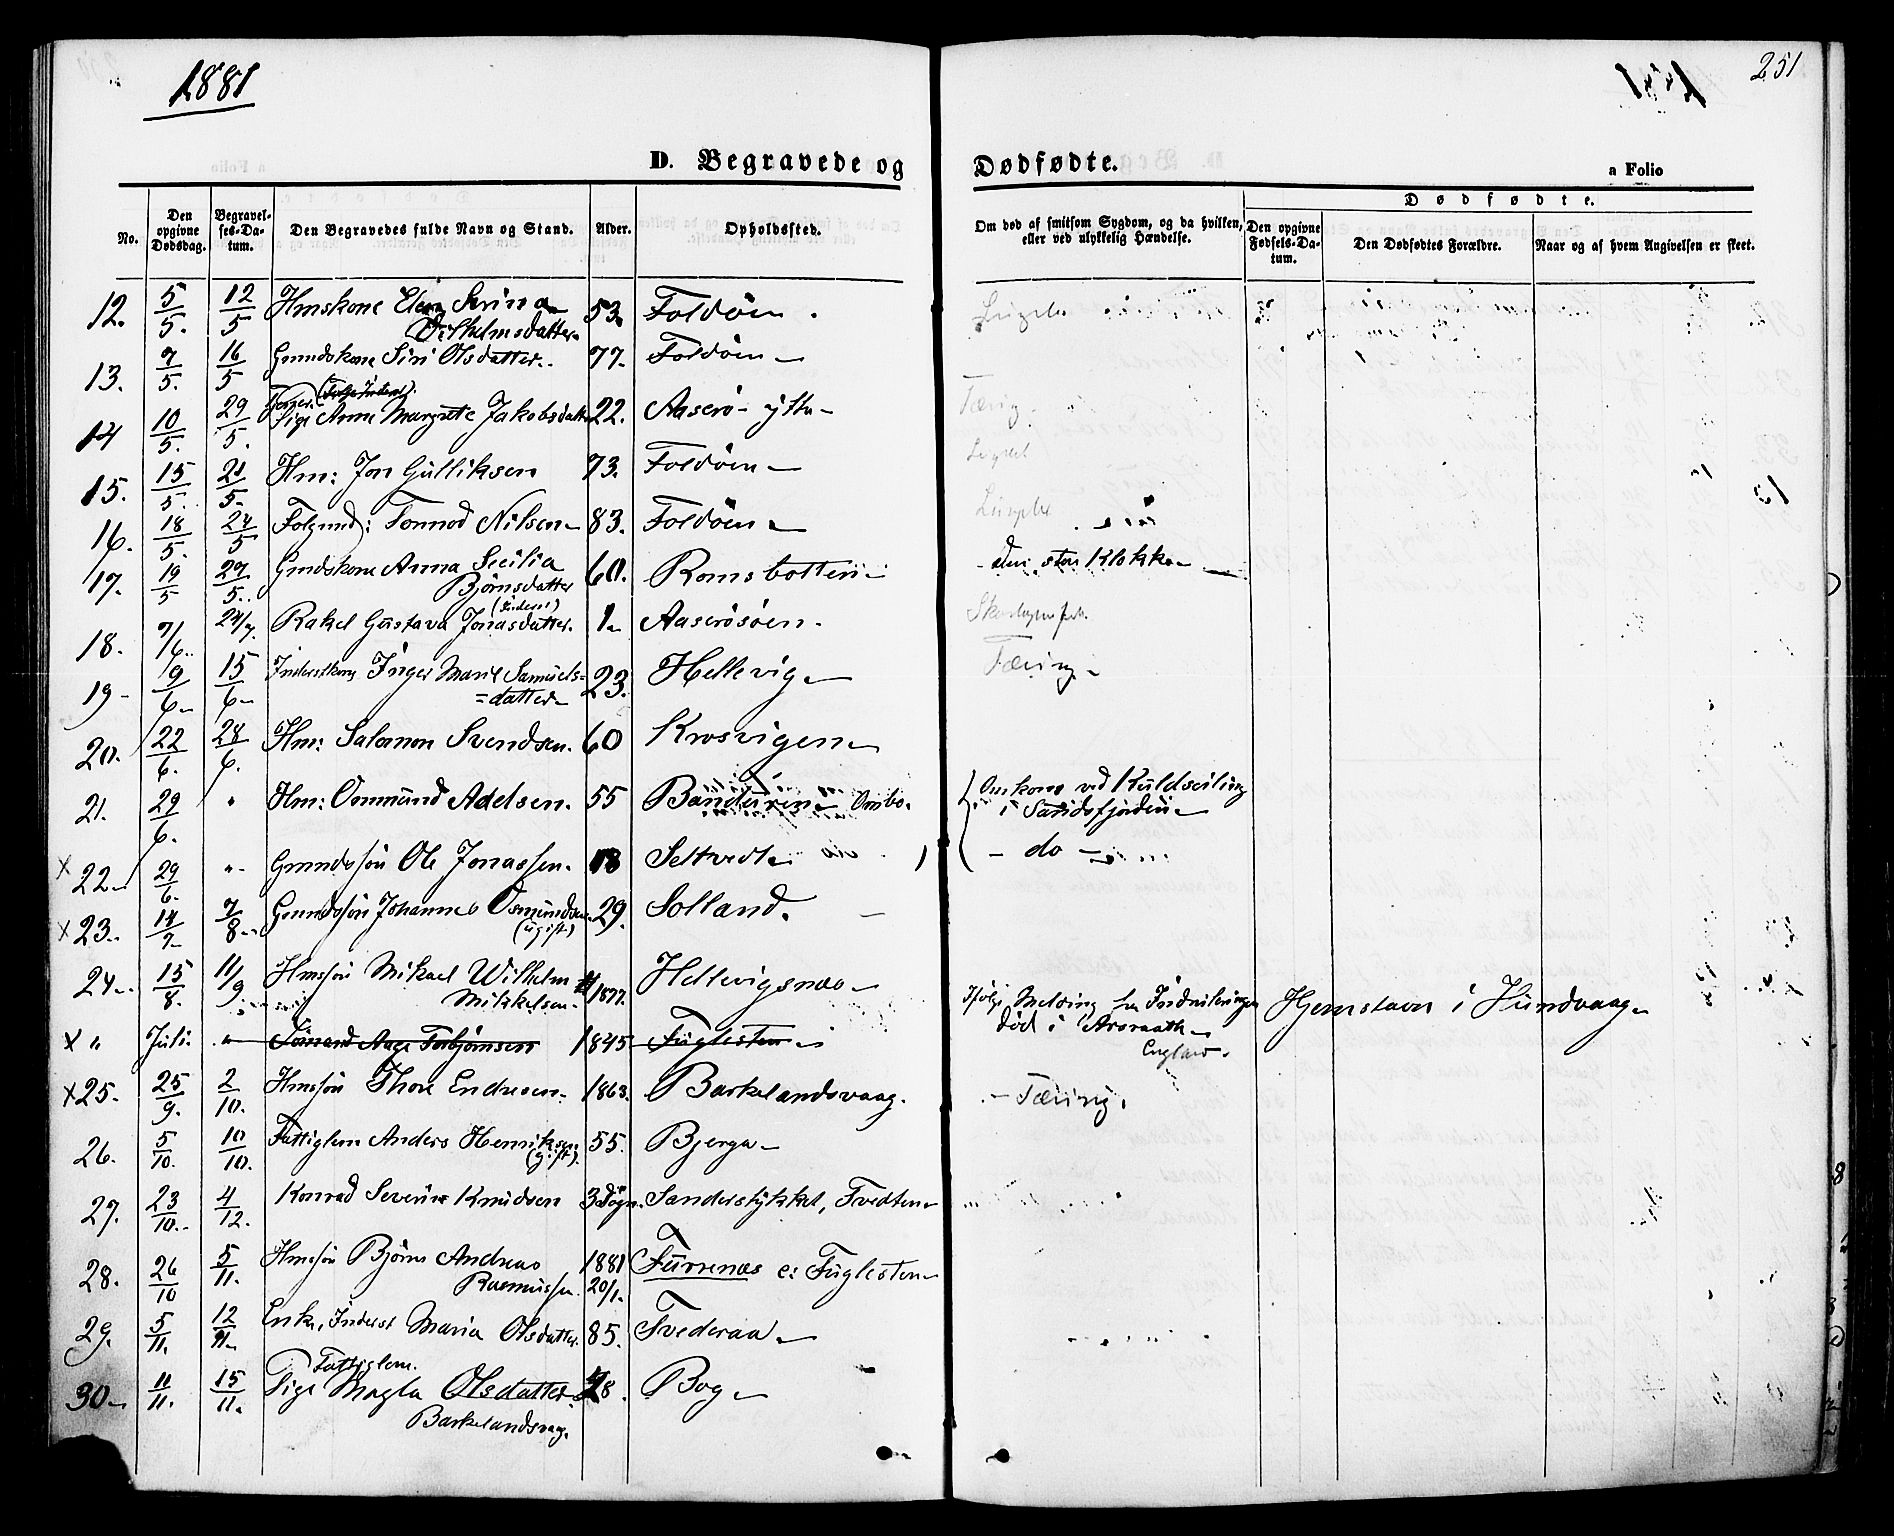 1881
251
D. Begravede og Dødfødte.
a Folio
No.
Den opgivne Dødsdag.
Begravelses-Datum.
Den Begravedes fulde Navn og Stand.
Alder.
Opholdssted.
Om død af smitsom Sygdom, og da hvilken, eller ved ulykkelig Hændelse.
Dødfødte.
Den opgivne Fødsels-Datum.
Den Dødfødtes Forældre.
Naar og af hvem Angivelsen er skeet.
12. 5/5. 12/5 Hmskone Elen Serina 53. Foldöen.
Vilhelmsdatter
13. 7/5. 16/5 Grmdskone Siri Olsdatter. 77. Foldöen
14 10/5. 29/5. Pige Anne Margrete Jakobsdatter 22. Aaserö ytte Tæring
15. 15/5. 21/5. Hm: Jon Gulliksen 73. Foldöen
16. 18/5. 24/5 Folgmd: Tormod Nilsen 83. Foldöen
17. 19/5 27/5. Gmdskone Anna Secilia 60. Romsbotten den store Klokke
Björnsdatter
18. 7/6. 24/7. Rakel Gustava Jonasdatter. 1. Aaserösöen.
19 9/6 15/6 Inderstkone Inger Marie Samuels= 23. Hellevig Tæring
=datter
20. 22/6. 28/6. Hm: Salomon Svendsen. 60 Krosvigen
21. 29/6. " Hm: Osmund Adelsen. 55 Banduren Ombo. Omkom ved Kuldseiling
i Sandsfjorden
x 22. 29/6. " Grmdssön Ole Jonassen. 18 Seltvedt do
x 23. 14/7 7/8 Grmdssön Johannes Osmundsen 29. Solland.
(ugift)
24. 15/8. 11/9 Hmssön Mikael Wilhelm 1877. Hellevigsnæs
Mikkelsen
x " Juli " Sömand Aage Torbjörnsen 1845 Fuglesten Ifölge Melding fra Indrulleringen Hjemstavn i Hundvaag
död i
England.
x 25. 25/9. 2/10. Hmssön Thore Endresen. 1863. Barkelandsvaag. Tæring.
26. 5/10. 10/10. Fattiglem Anders Henriksen 55. Bjerga
(gift).
27. 23/10. 4/12. Konrad Severin Knudsen 3 Dögn. Sanderstykket, Tvedten
28. 26/10 5/11. Hmssön Björn Andreas 1881 Furrenæs e: Fuglesten
Rasmussen. 20/1.
29. 5/11. 12/11 Enke, Inderst Maria Olsdatter. 85. Tvederaa
Fattiglem.
30 11/11. 15/11. Pige Magla Olsdatter 28. Bog
Barkelandsvag.